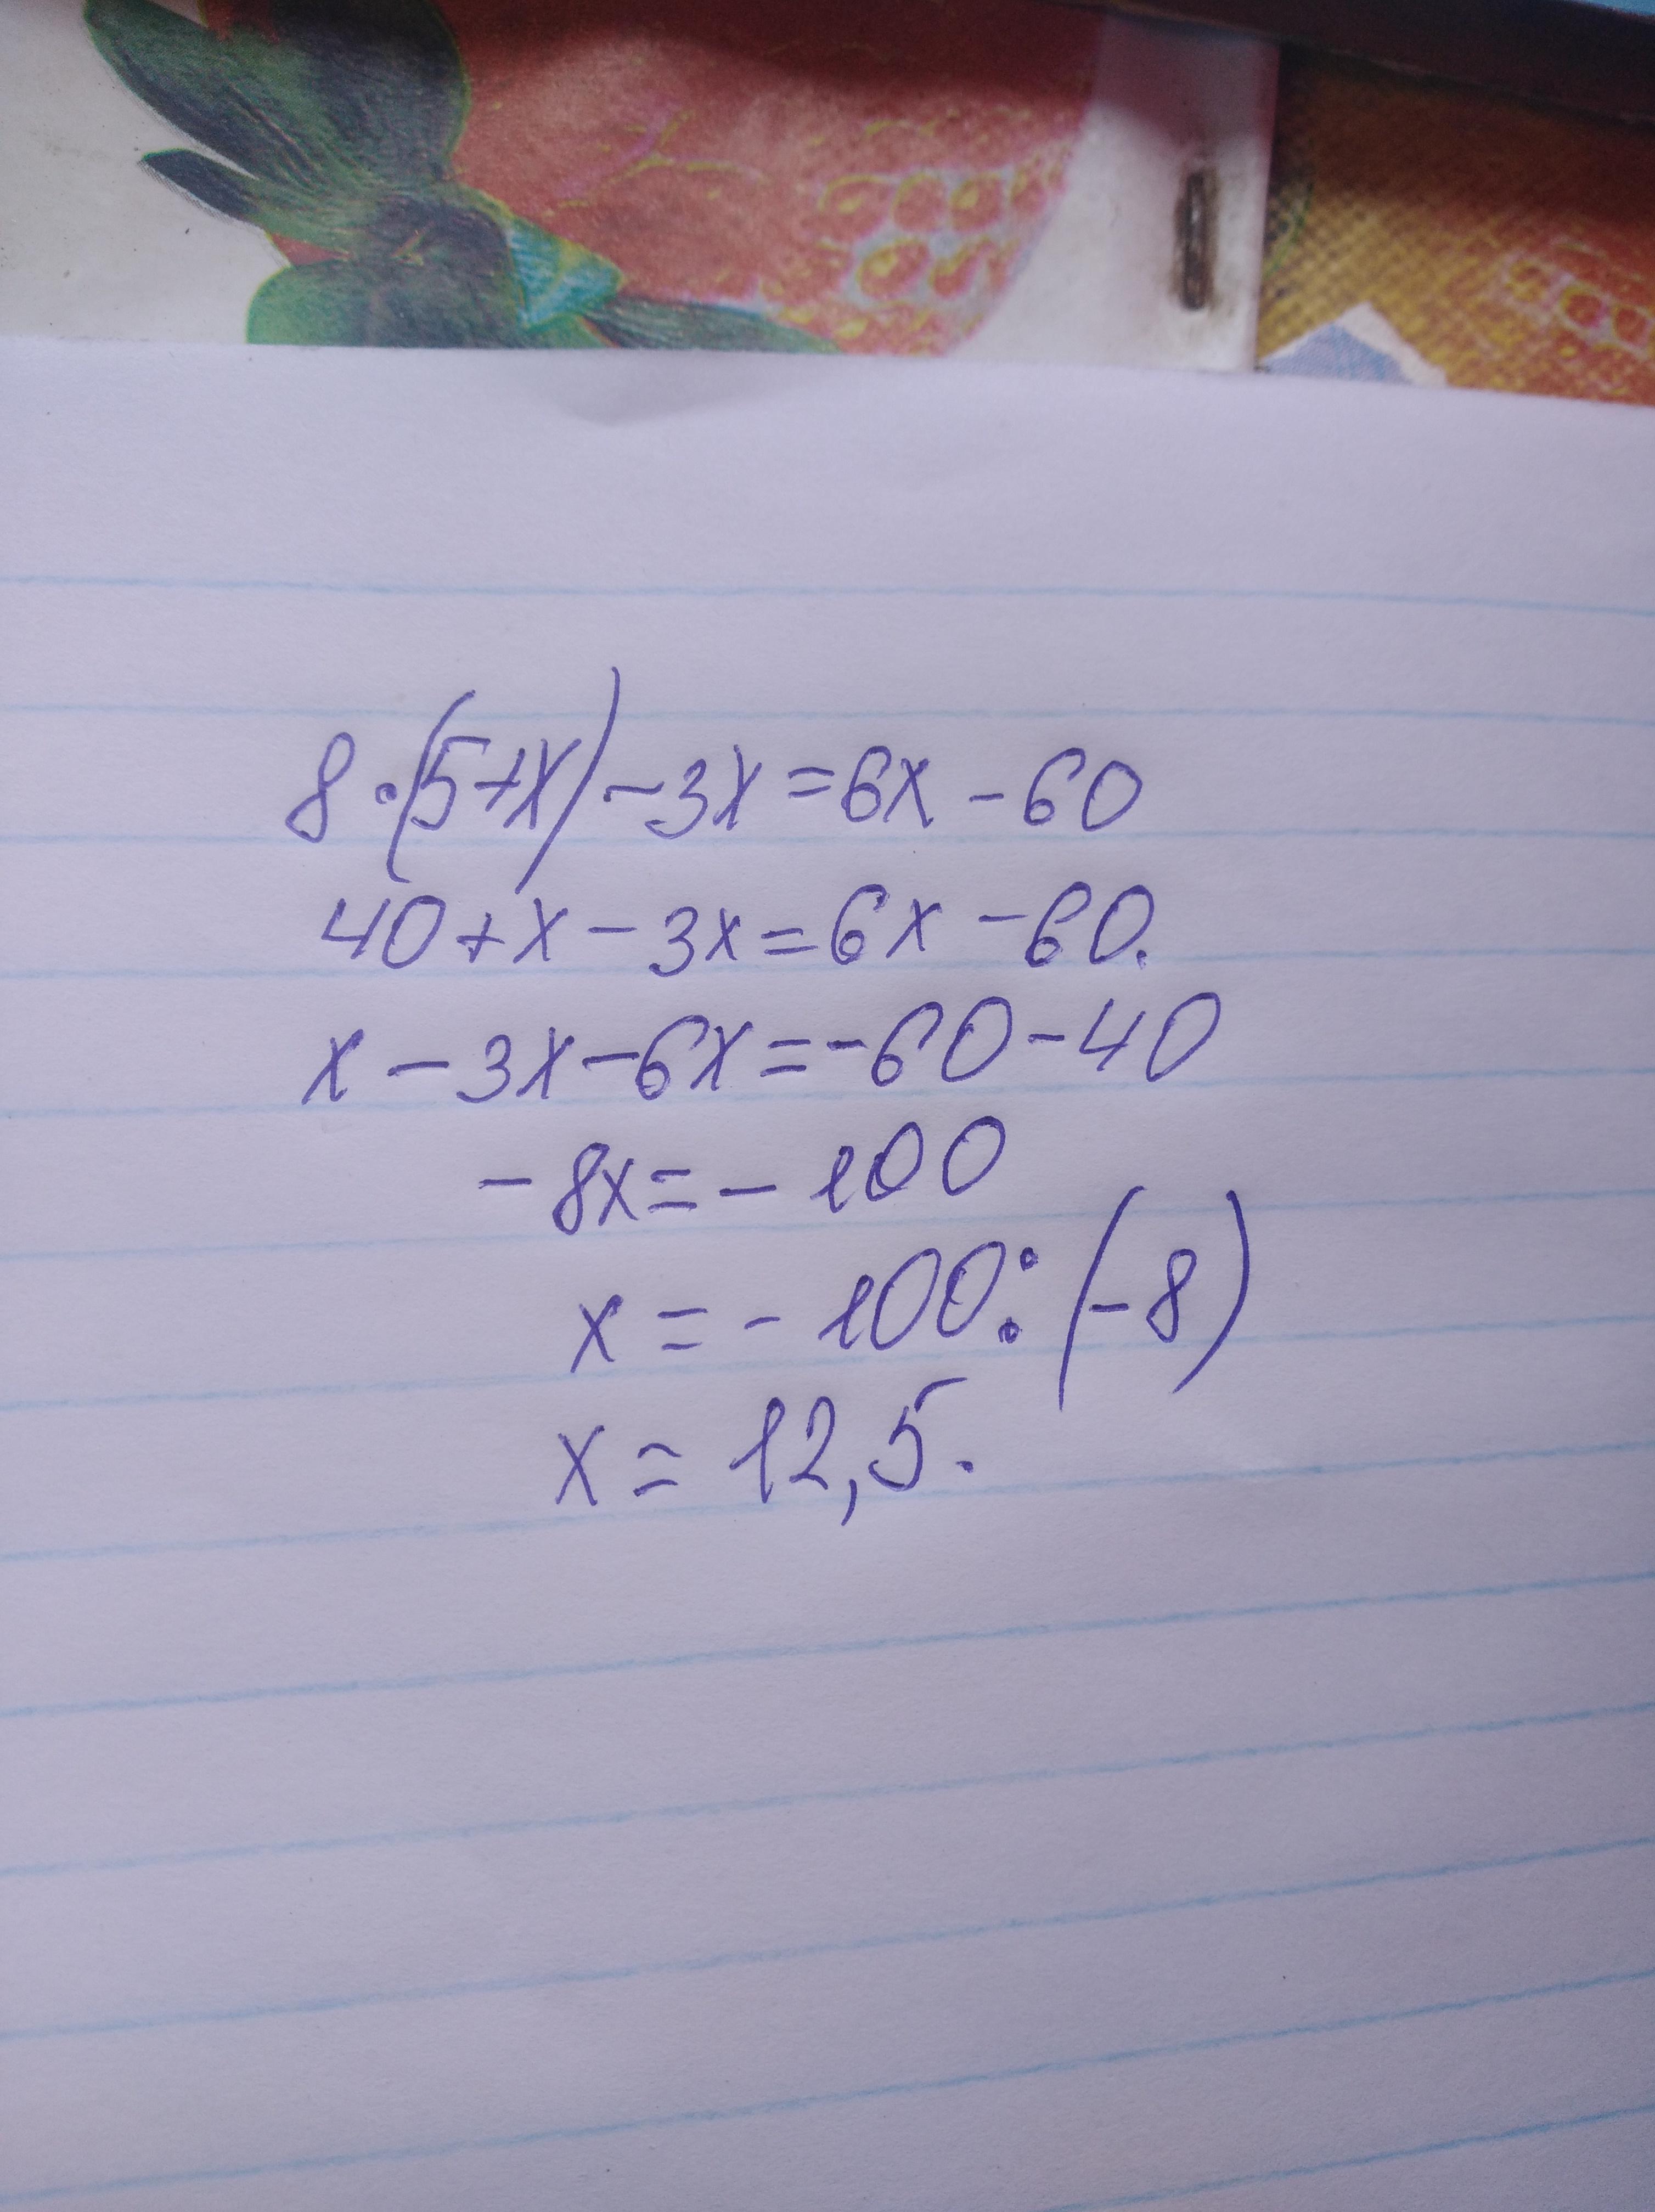 8·(5+x)-3x=6x-60
40+x-3x=6x-60.
x-3x-6x=-60-40
-8x=-100
x=-100:(-8)
x=12,5.